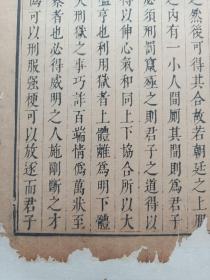 之然後可得其合故若朝廷之上那
之内有一小人間厠其間則為君子
必須刑罰窮極之則君子之道得以
得以伸心氣和上下協合所以大
盬亨也利用獄者上體離為明下體
人刑獄之事巧詐百端情偽萬狀至
蔡者也必得威明之人施剛斷之才
可以刑服强梗可以放逐而君子